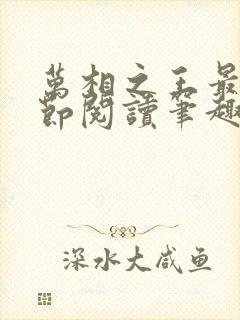 萬相之王最
節閱讀筆趣
深水大咸鱼